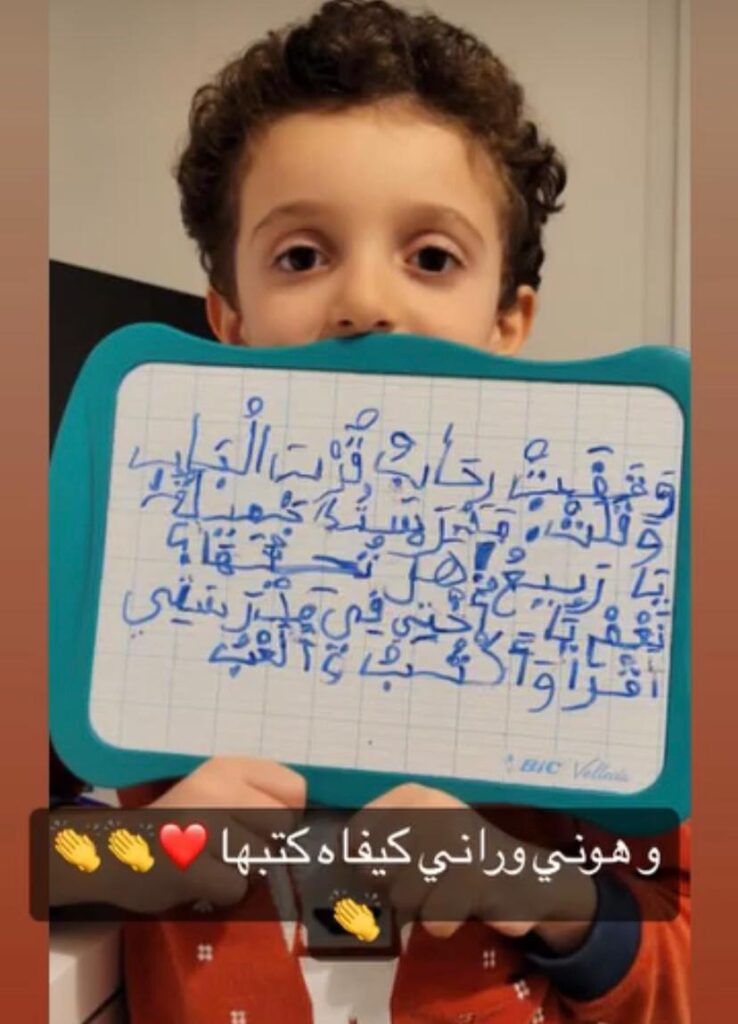 وَقَفَتْ رِحَابُ قُرْبَ الْبَابِ
وَقَالَتْ: مَدْرَسَتُكَ جَمِيلَةٌ
يَا رَبِيعُ! هَلْ تُحِبُّهَا؟
نَعَمْ يَا أُخْتِي فِي مَدْرَسَتِي
أَقْرَأُ وَ أَكْتُبُ وَ أَلْعَبُ
BIC Velleda
و هوني وراني كيفاه كتبها ❤️👏👏
👏